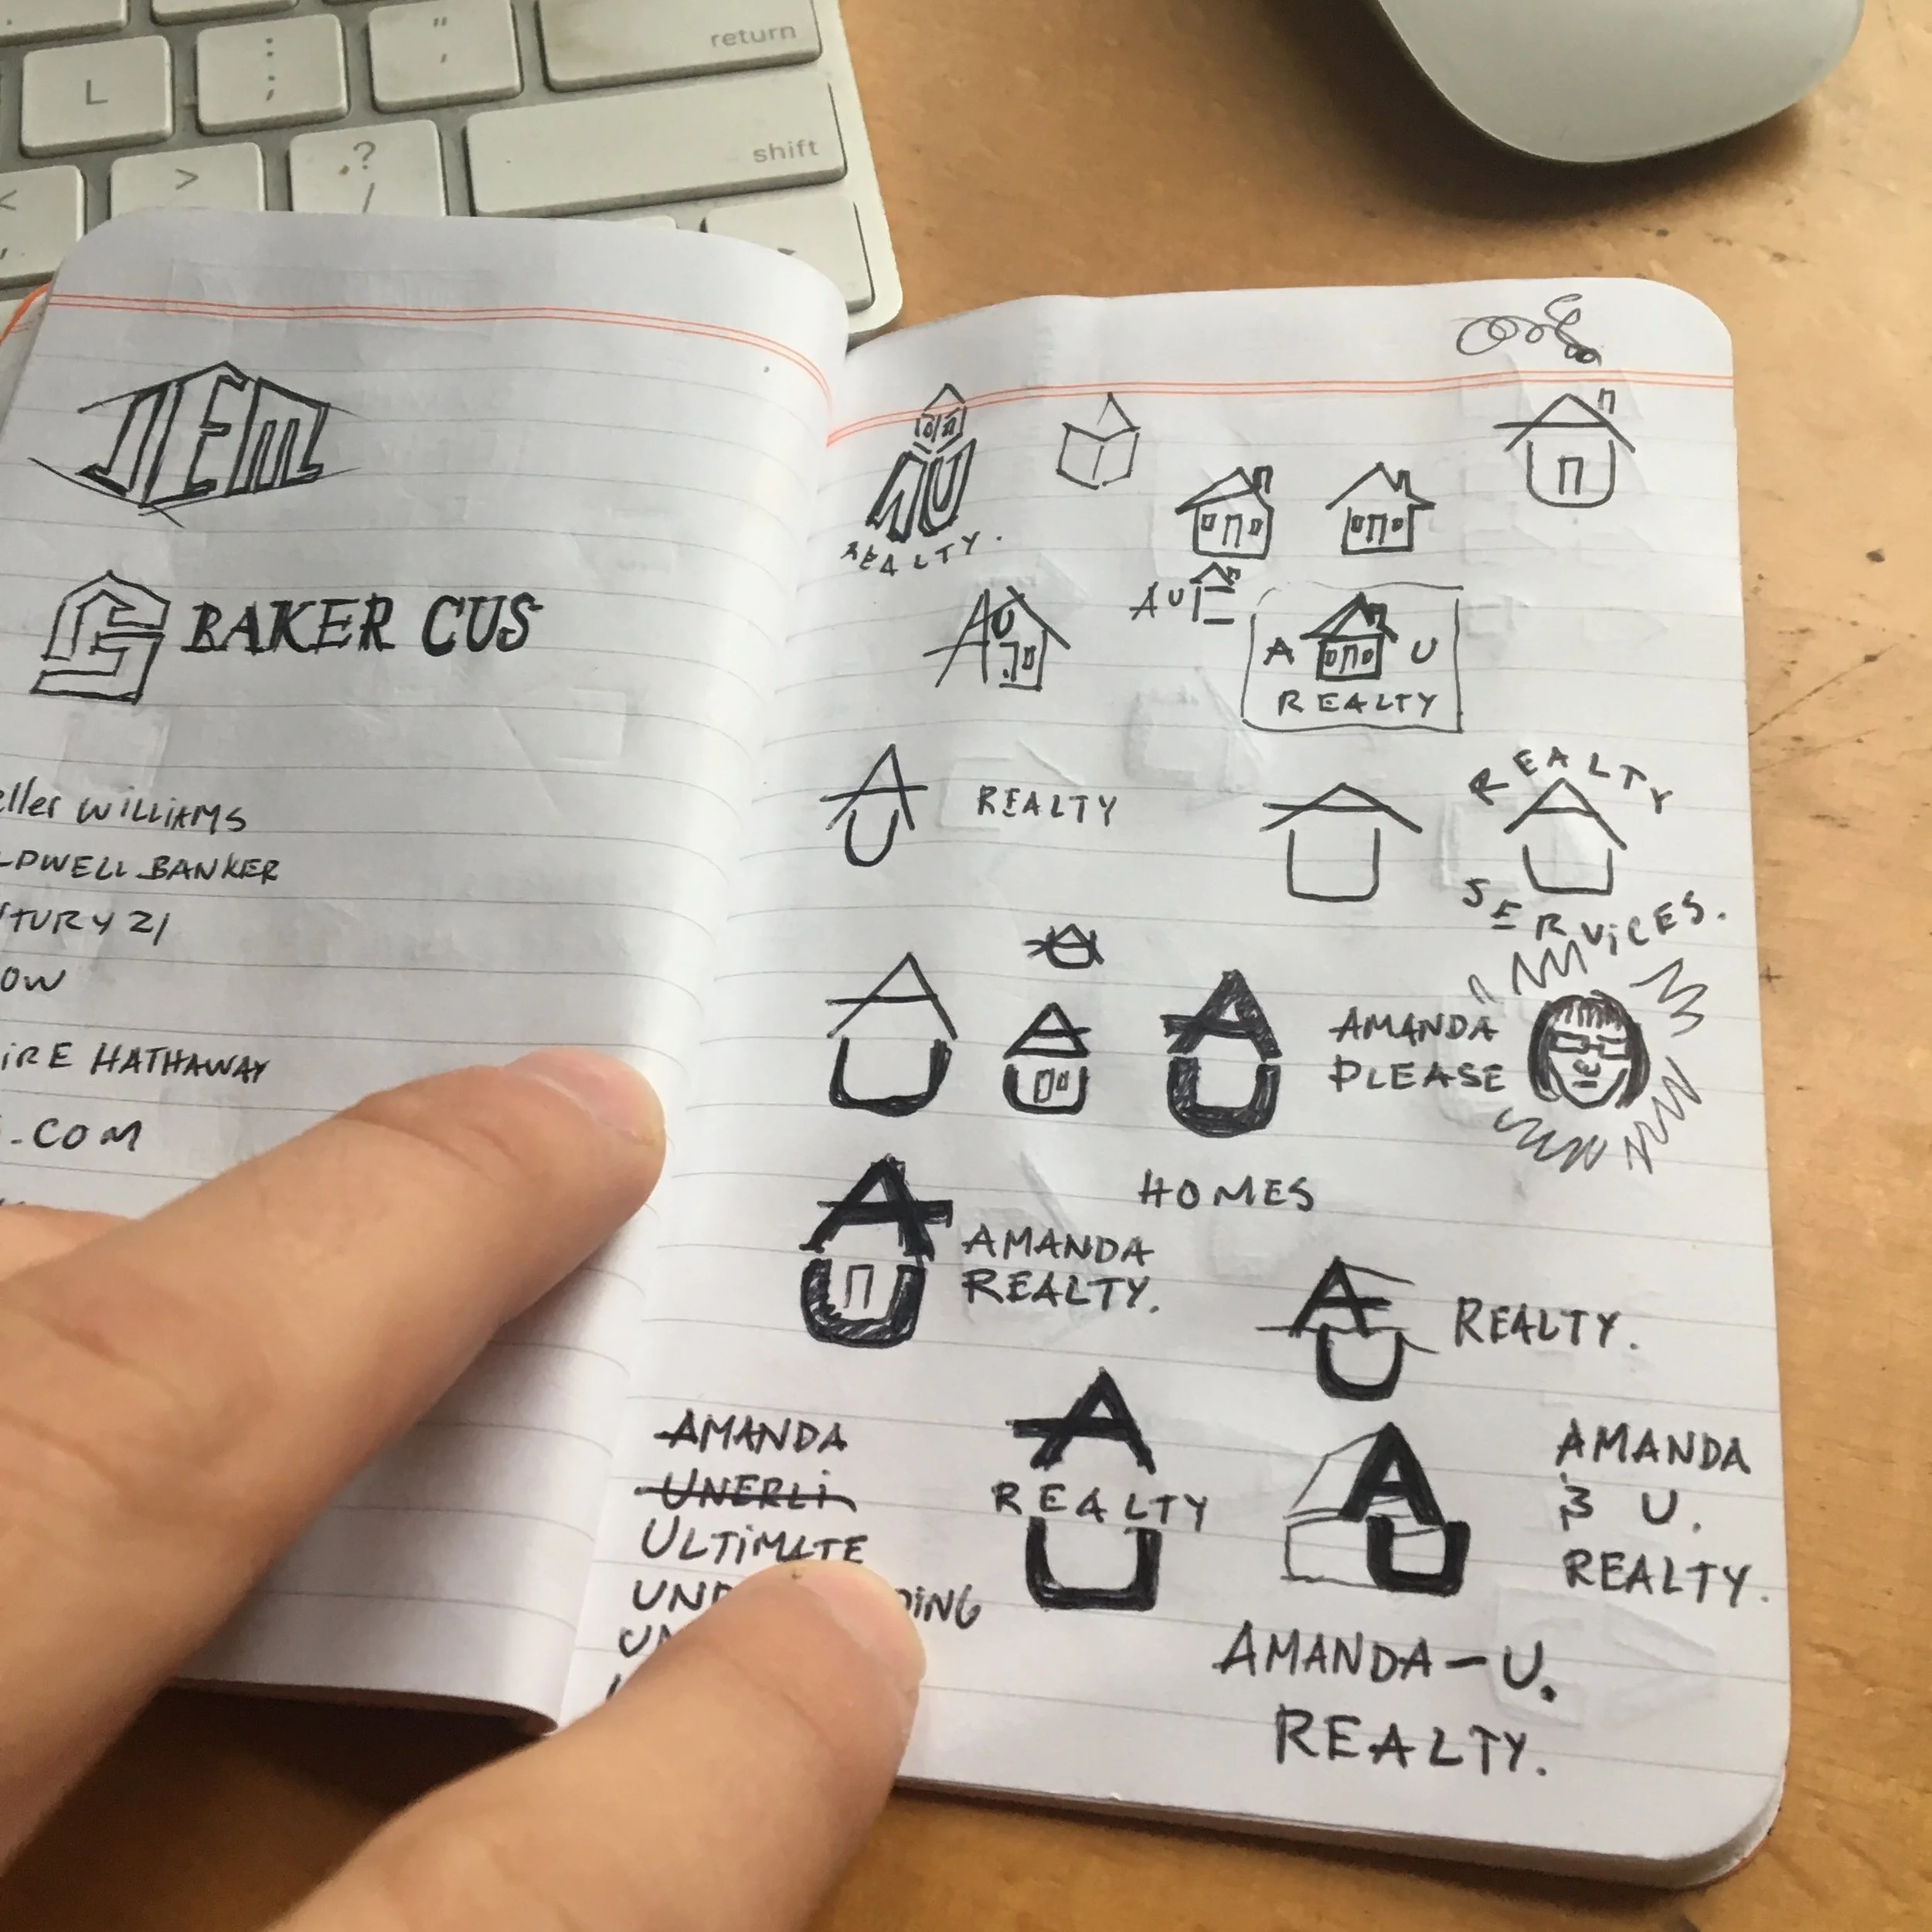 return
L
: ;
" '
shift
>
? /
<
,
JEM
BAKER CUS
eller WiLLiAMS
LDWELL BANKER
TURY 21
OW
iRE HATHAWAY
.COM
AU
REALTY.
AU
AU
A U
REALTY
AU
REALTY
REALTY
SERViCES.
AU
AMANDA
PLEASE
HOMES
AU
AMANDA
REALTY.
AU
REALTY.
AMANDA
UNERLi
ULTiMATE
UND DiNG
UN
A
REALTY
U
AU
AMANDA
& U.
REALTY.
AMANDA-U.
REALTY.